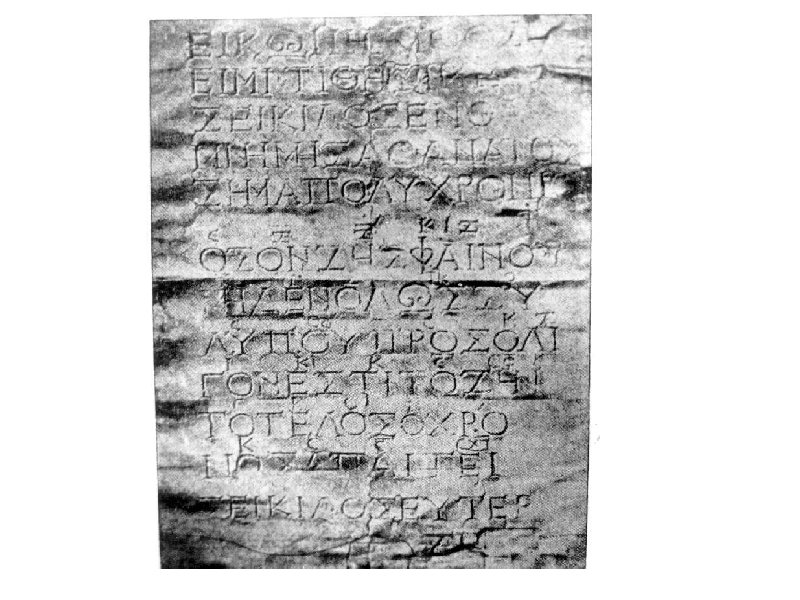 ΕΙΚΩΝ Η ΛΙΘΟΣ
ΕΙΜΙ ΤΙΘΗΣΙ ΜΕ
ΣΕΙΚΙΛΟΣ ΕΝΘ
ΜΝΗΜΗΣ ΑΘΑΝΑΤΟΥ
ΣΗΜΑ ΠΟΛΥΧΡΟΝΙ
C Ζ Ζ ΚΙΖ
ΟΣΟΝ ΖΗΣ ΦΑΙΝΟΥ
ΜΗΔΕΝ ΟΛΩΣ ΣΥ
ΛΥΠΟΥ ΠΡΟΣ ΟΛΙ
ΓΟΝ ΕΣΤΙ ΤΟ ΖΗΝ
ΤΟ ΤΕΛΟΣ Ο ΧΡΟ
ΝΟΣ ΑΠΑΙΤΕΙ
ΣΕΙΚΙΛΟΣ ΕΥΤΕΡ
ΖΗ